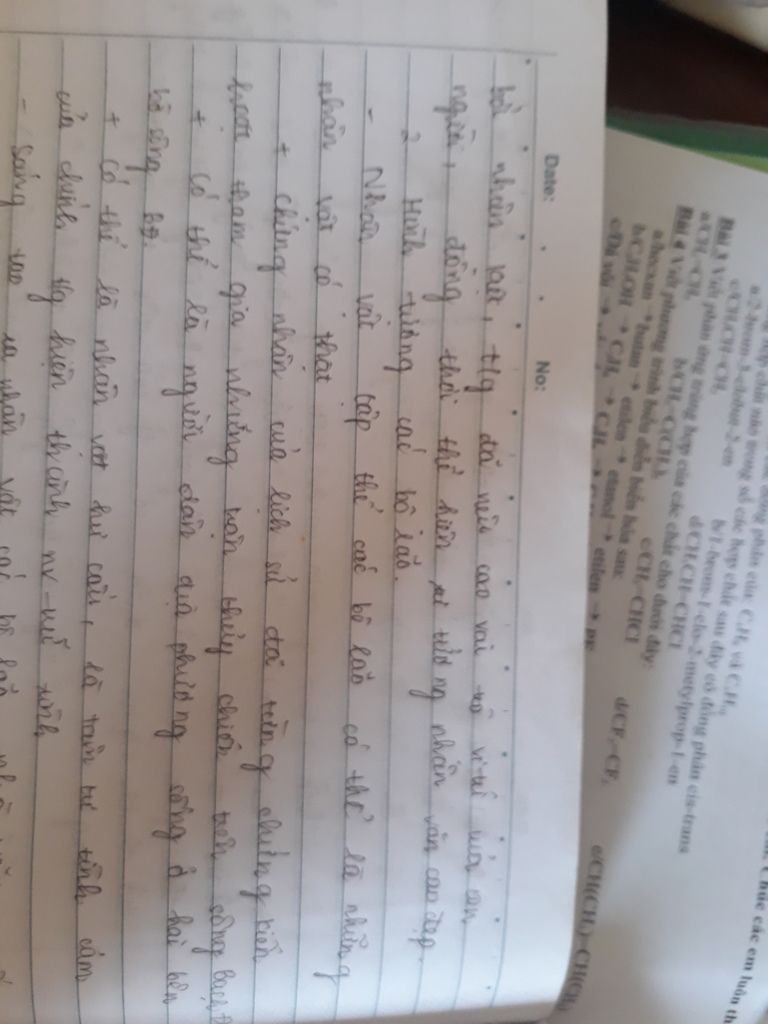 Date: No:
hồi nhân kiệt, t/g đã nêu cao vai trò vị trí của con
người, đồng thời thể hiện tư tưởng nhân văn cao đẹp.
2 Hình tượng các bô lão.
- Nhân vật tập thể các bô lão có thể là những
nhân vật có thật
+ chứng nhân của lịch sử đã từng chứng kiến
hoặc tham gia những trận thủy chiến trên sông Bạch Đ
+ có thể là người dân địa phương sống ở hai bên
bờ sông BĐ.
+ Có thể là nhân vật hư cấu, là tâm tư tình cảm
của chính tg hiện thành nv-trữ tình
- Sáng tạo ra nhân vật các bô lão
Chúc các em luôn th
đồng phân của C₄H₈ và C₅H₁₀
hợp chất nào trong số các hợp chất sau đây có đồng phân cis-trans
a/2-brom-3-clobut-2-en b/1-brom-1-clo-2-metylprop-1-en
c/CH₃CH=CH₂ d/CH₃CH=CHCl
Bài 3 Viết phản ứng trùng hợp của các chất cho dưới đây:
a/CH₂=CH₂ b/CH₂=C(CH₃)₂ c/CH₂=CHCl d/CF₂=CF₂ e/CH(CH₃)=CH(CH₃)
Bài 4 Viết phương trình biểu diễn biến hóa sau:
a/hexan → butan → etilen → etanol → etilen → PE
b/C₂H₅OH → C₂H₄
c/Đá vôi →